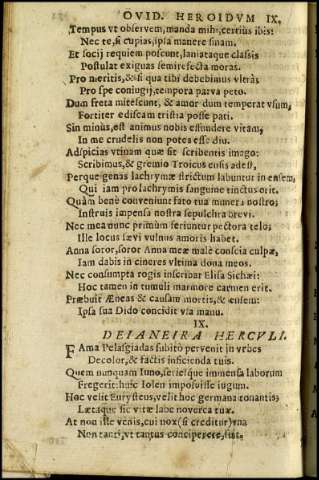 OVID. HEROIDVM IX.
Tempus vt observem, manda mihi, certius ibis:
Nec te, si cupias, ipsa manere sinam.
Et socij requiem poscunt, laniataque classis
Postulat exiguas semirefecta moras.
Pro meritis, & si qua tibi debebimus vltra,
Pro spe coniugij, tempora parva peto.
Dum freta mitescunt, & amor dum temperat vsum,
Fortiter ediscam tristia posse pati.
Sin minus, est animus nobis effundere vitam,
In me crudelis non potes esse diu.
Adspicias vtinam quæ sit scribentis imago:
Scribimus, & gremio Troicus ensis adest,
Perque genas lachrymæ strictum labuntur in ensem,
Qui iam pro lachrymis sanguine tinctus erit.
Quàm benè conveniunt fato tua munera nostro;
Instruis impensa nostra sepulchra brevi.
Nec mea nunc primùm feriuntur pectora telo;
Ille locus sævi vulnus amoris habet.
Anna soror, soror Anna meæ malè conscia culpæ,
Iam dabis in cineres vltima dona meos.
Nec consumpta rogis inscribar Elisa Sichæi:
Hoc tamen in tumuli marmore carmen erit.
Præbuit Æneas & causam mortis, & ensem:
Ipsa sua Dido concidit vsa manu.
IX.
DEIANEIRA HERCVLI.
FAma Pelasgiadas subitò pervenit in vrbes
Decolor, & factis inficienda tuis.
Quem nunquam Iuno, seriesque immensa laborum
Fregerit: huic Iolen imposuisse iugum.
Hoc velit Eurysteus, velit hoc germana tonantis;
Lætaque sit vitæ labe noverca tuæ.
At non iste venis, cui nox (si creditur) vna
Non tanti, vt tantus conciperere, fuit.